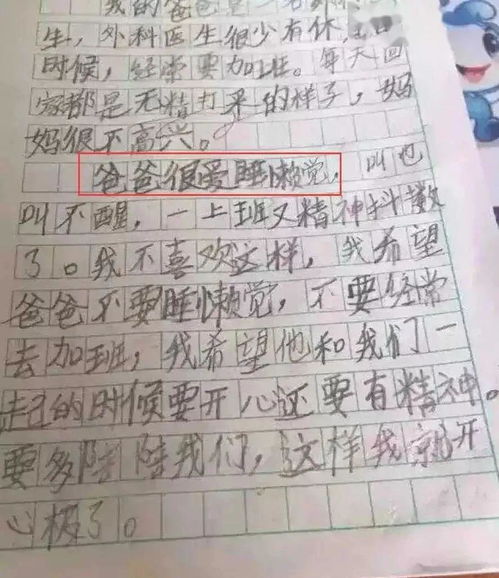 我的爸爸是一名外科
生，外科医生很少有休
时候，经常要加班。每天回
家都是无精打采的样子，妈
妈很不高兴。
爸爸很爱睡懒觉，叫也
叫不醒，一上班又精神抖擞
了。我不喜欢这样，我希望
爸爸不要睡懒觉，不要经常
去加班，我希望他和我们一
起的时候要开心还要有精神。
要多陪陪我们，这样我就开
心极了。